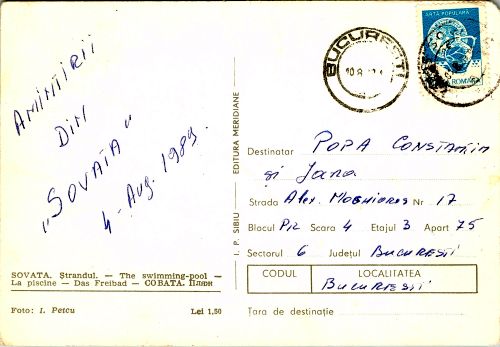 AMINTIRI
DIN
„SOVATA"
4 Aug. 1989.
SOVATA. Ştrandul. — The swimming-pool —
La piscine — Das Freibad — СОВАТА. Пляж
Foto: I. Petcu
Lei 1,50
I. P. SIBIU EDITURA MERIDIANE
BUCUREŞTI
ARTĂ POPULARĂ
ROMANA
Destinatar POPA CONSTANTIN
şi Jana
Strada Alex. MOGHIOROS Nr 17
Blocul P12 Scara 4 Etajul 3 Apart 75
Sectorul 6 Judeţul BUCUREŞTI
CODUL LOCALITATEA
BUCUREŞTI
Tara de destinaţie